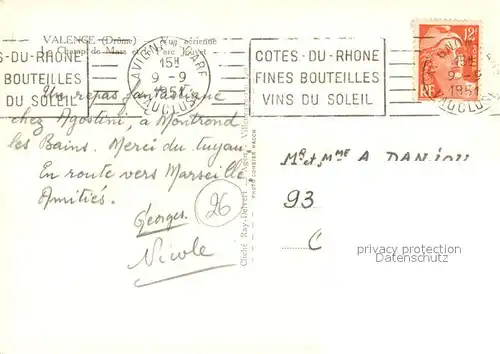 VALENCE (Drôme) Vue aérienne
Le Champ de Mars et le Parc Jouvet
S-DU-RHONE
BOUTEILLES
DU SOLEIL
AVIGNON GARE
15H
9-9
1951
VAUCLUSE
COTES-DU-RHONE
FINES BOUTEILLES
VINS DU SOLEIL
12F
RF
9-9
1951
VAUCLUSE
Un repas fantastique
chez Agostini, à Montrond
les Bains. Merci du tuyau.
En route vers Marseille
Amitiés.
Georges.
Nicole
26
Cliché Ray-Delvert
PHOTO COMBIER MACON
Mr et Mme A DANJOU
93
C
privacy protection
Datenschutz